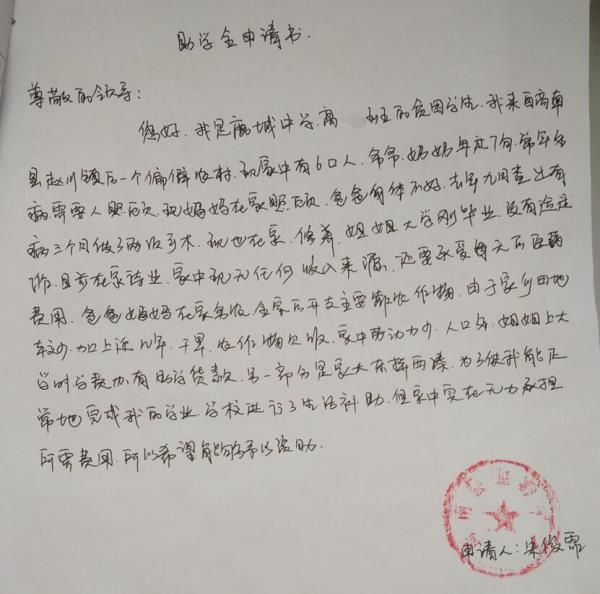 助学金申请书.
尊敬的领导:
您好.我是商城中学.高 班的贫困学生.我来自商南
县赵川镇后一个偏僻农村.现家中有6口人,爷爷.奶奶年近7旬.常年多
病.需要人照顾.现妈妈在家照顾.爸爸身体不好.去年九月查出有
病三个月做了两次手术.现也在家.修养,姐姐大学刚毕业.没有稳定
工作.目前在家待业.家中现无任何收入来源,还要承受每天的医药
费用.爸爸妈妈在家务农,全家的开支主要靠农作物.由于家乡田地
较少.加上近几年.干旱.农作物欠收.家中劳动力少.人口多.姐姐上大
学时学费办有助学贷款.另一部分是家大东拼西凑.为了使我能正
常地完成我的学业.学校进行了生活补助.但家中实在无力承担
所需费用.所以希望能够给予以资助.
申请人:朱俊霏